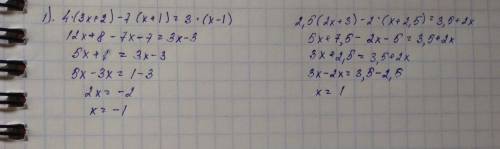 1). 4·(3x+2)-7·(x+1)=3·(x-1)
12x+8-7x-7=3x-3
5x+1=3x-3
5x-3x=1-3
2x=-2
x=-1
2,5(2x+3)-2·(x+2,5)=3,5+2x
5x+7,5-2x-5=3,5+2x
3x+2,5=3,5+2x
3x-2x=3,5-2,5
x=1